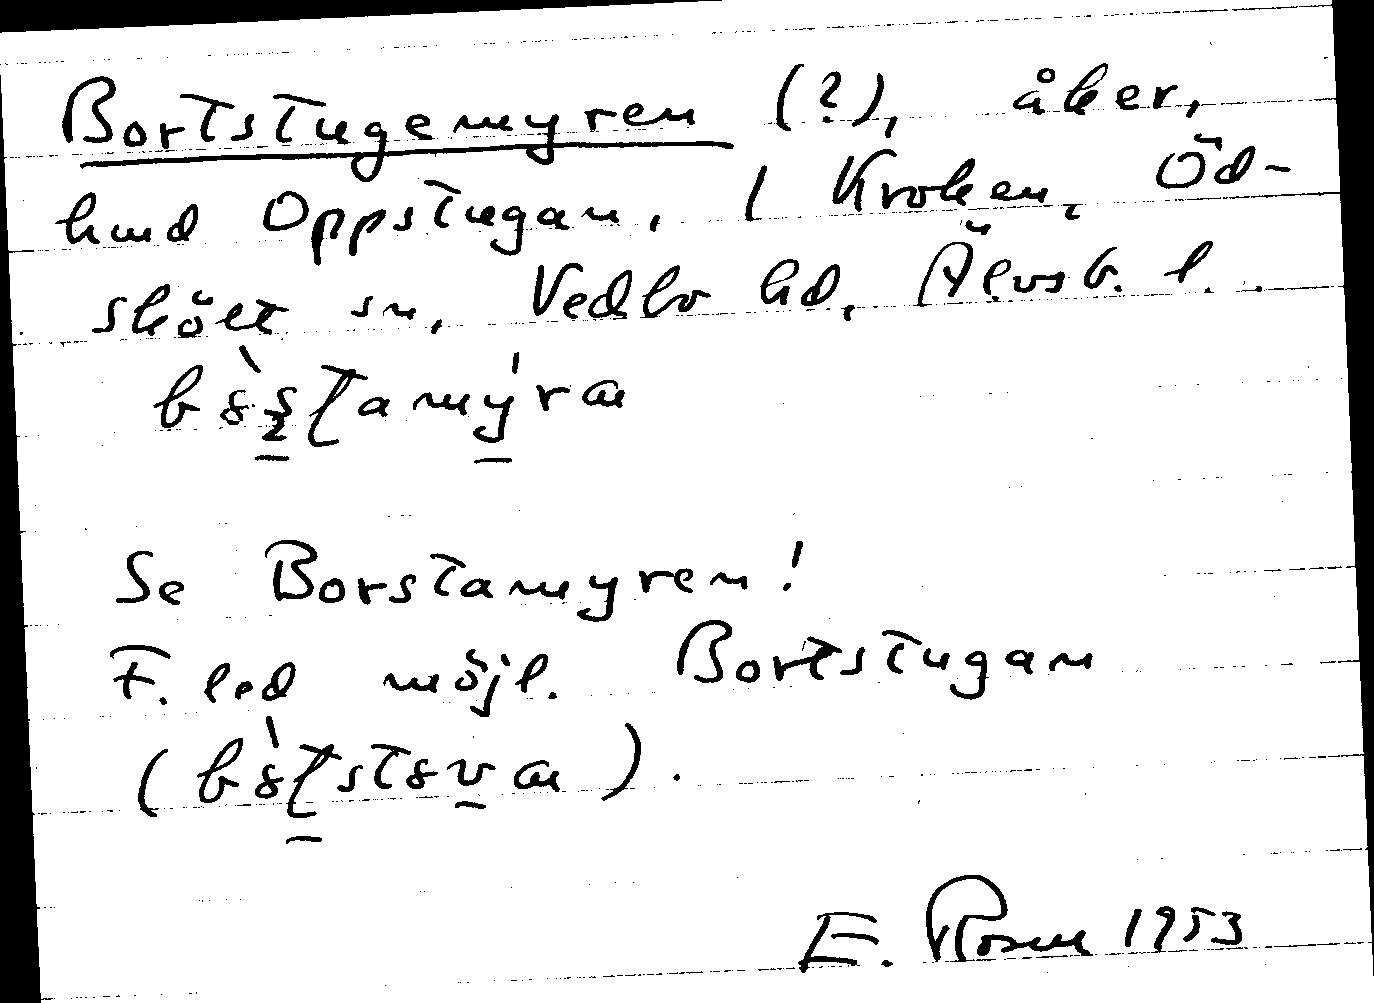 Bortstugemyren (?), åker,
hmd Oppstugan, 1 Kroken, Öd-
skölt sn, Vedbo hd, Älvsb. l.
Se Borstamyren!
F. led möjl. Bortstugan
E. Rosen 1953